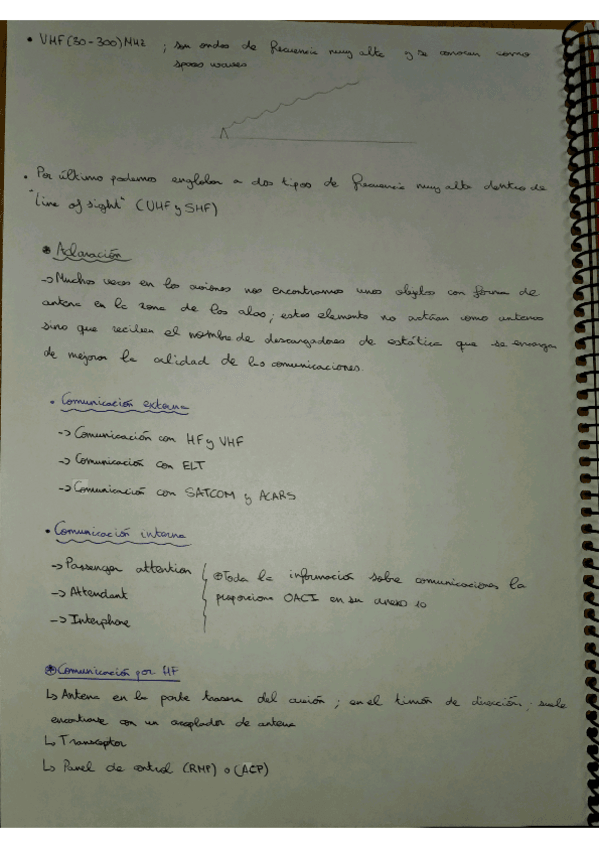 • VHF (30-300) MHz ; son ondas de frecuencia muy alta y se conocen como
space waves
• Por último podemos englobar a dos tipos de frecuencia muy alta dentro de
"line of sight" (UHF y SHF)
* Aclaración
-> Muchas veces en los aviones nos encontramos unos objetos con forma de
antena en la zona de las alas; estos elemento no actúan como antenas
sino que reciben el nombre de descargadores de estática que se encargan
de mejorar la calidad de las comunicaciones.
• Comunicación externa
-> Comunicación con HF y VHF
-> Comunicación con ELT
-> Comunicación con SATCOM y ACARS
• Comunicación interna
-> Passenger attention
-> Attendant
-> Interphone
Toda la información sobre comunicaciones la
proporciona OACI en su anexo 10
* Comunicación por HF
↳ Antena en la parte trasera del avión ; en el timón de dirección ; suele
encontrarse con un acoplador de antena
↳ Transceptor
↳ Panel de control (RMP) o (ACP)